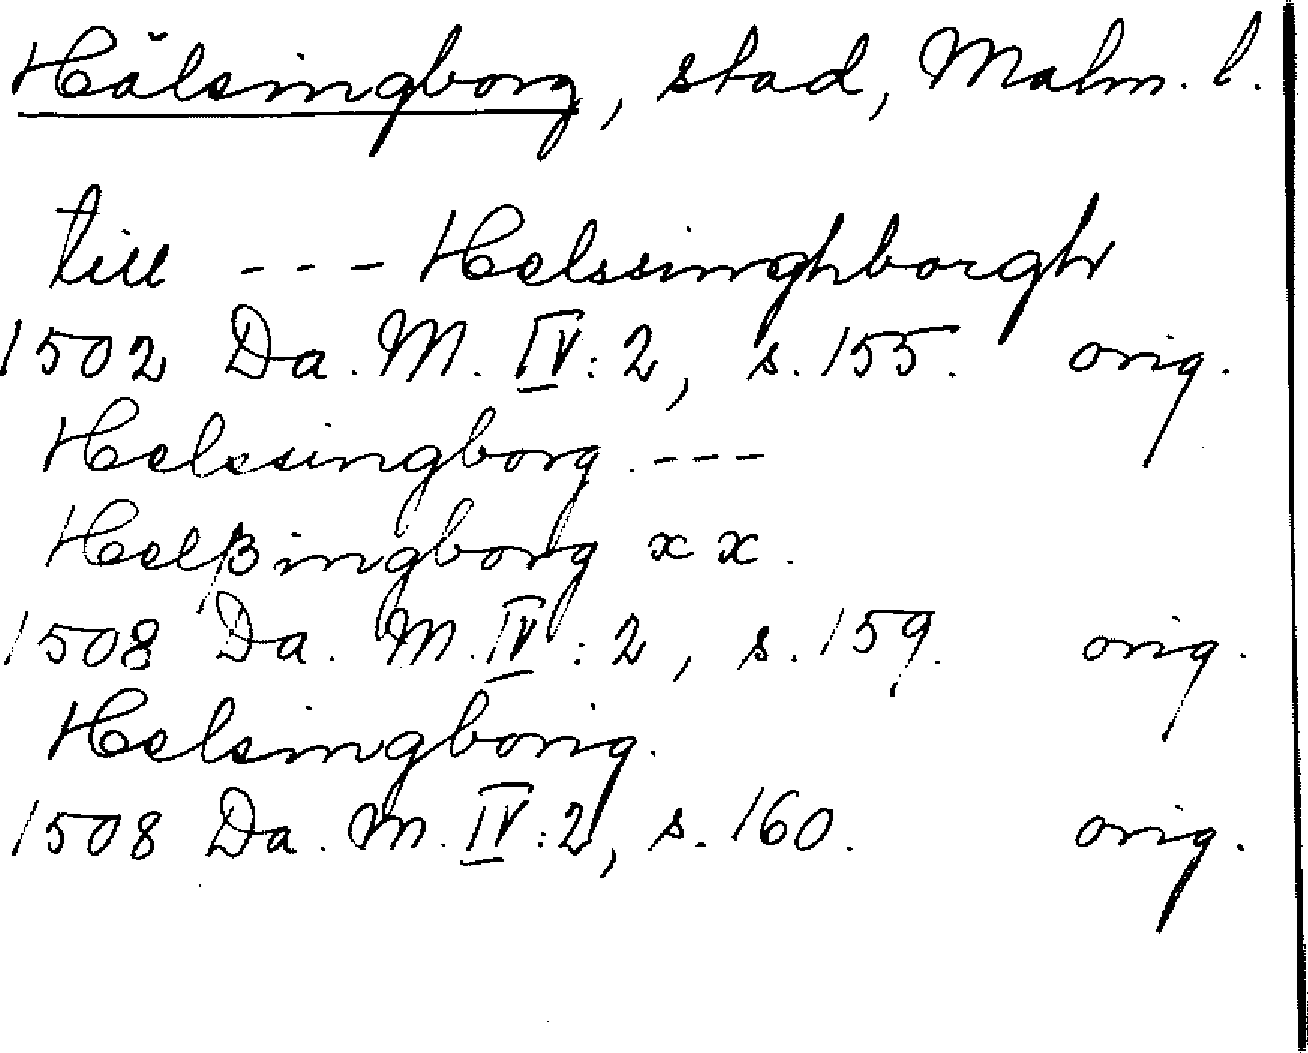 Hälsingborg, stad, Malm. l.
till --- Helssinghborgh
1502 Da. M. IV:2, s. 155. orig.
Helssingborg. ---
Helßingborg x x.
1508 Da. M. IV:2, s. 159. orig.
Helsingborig.
1508 Da. M. IV:2, s. 160. orig.